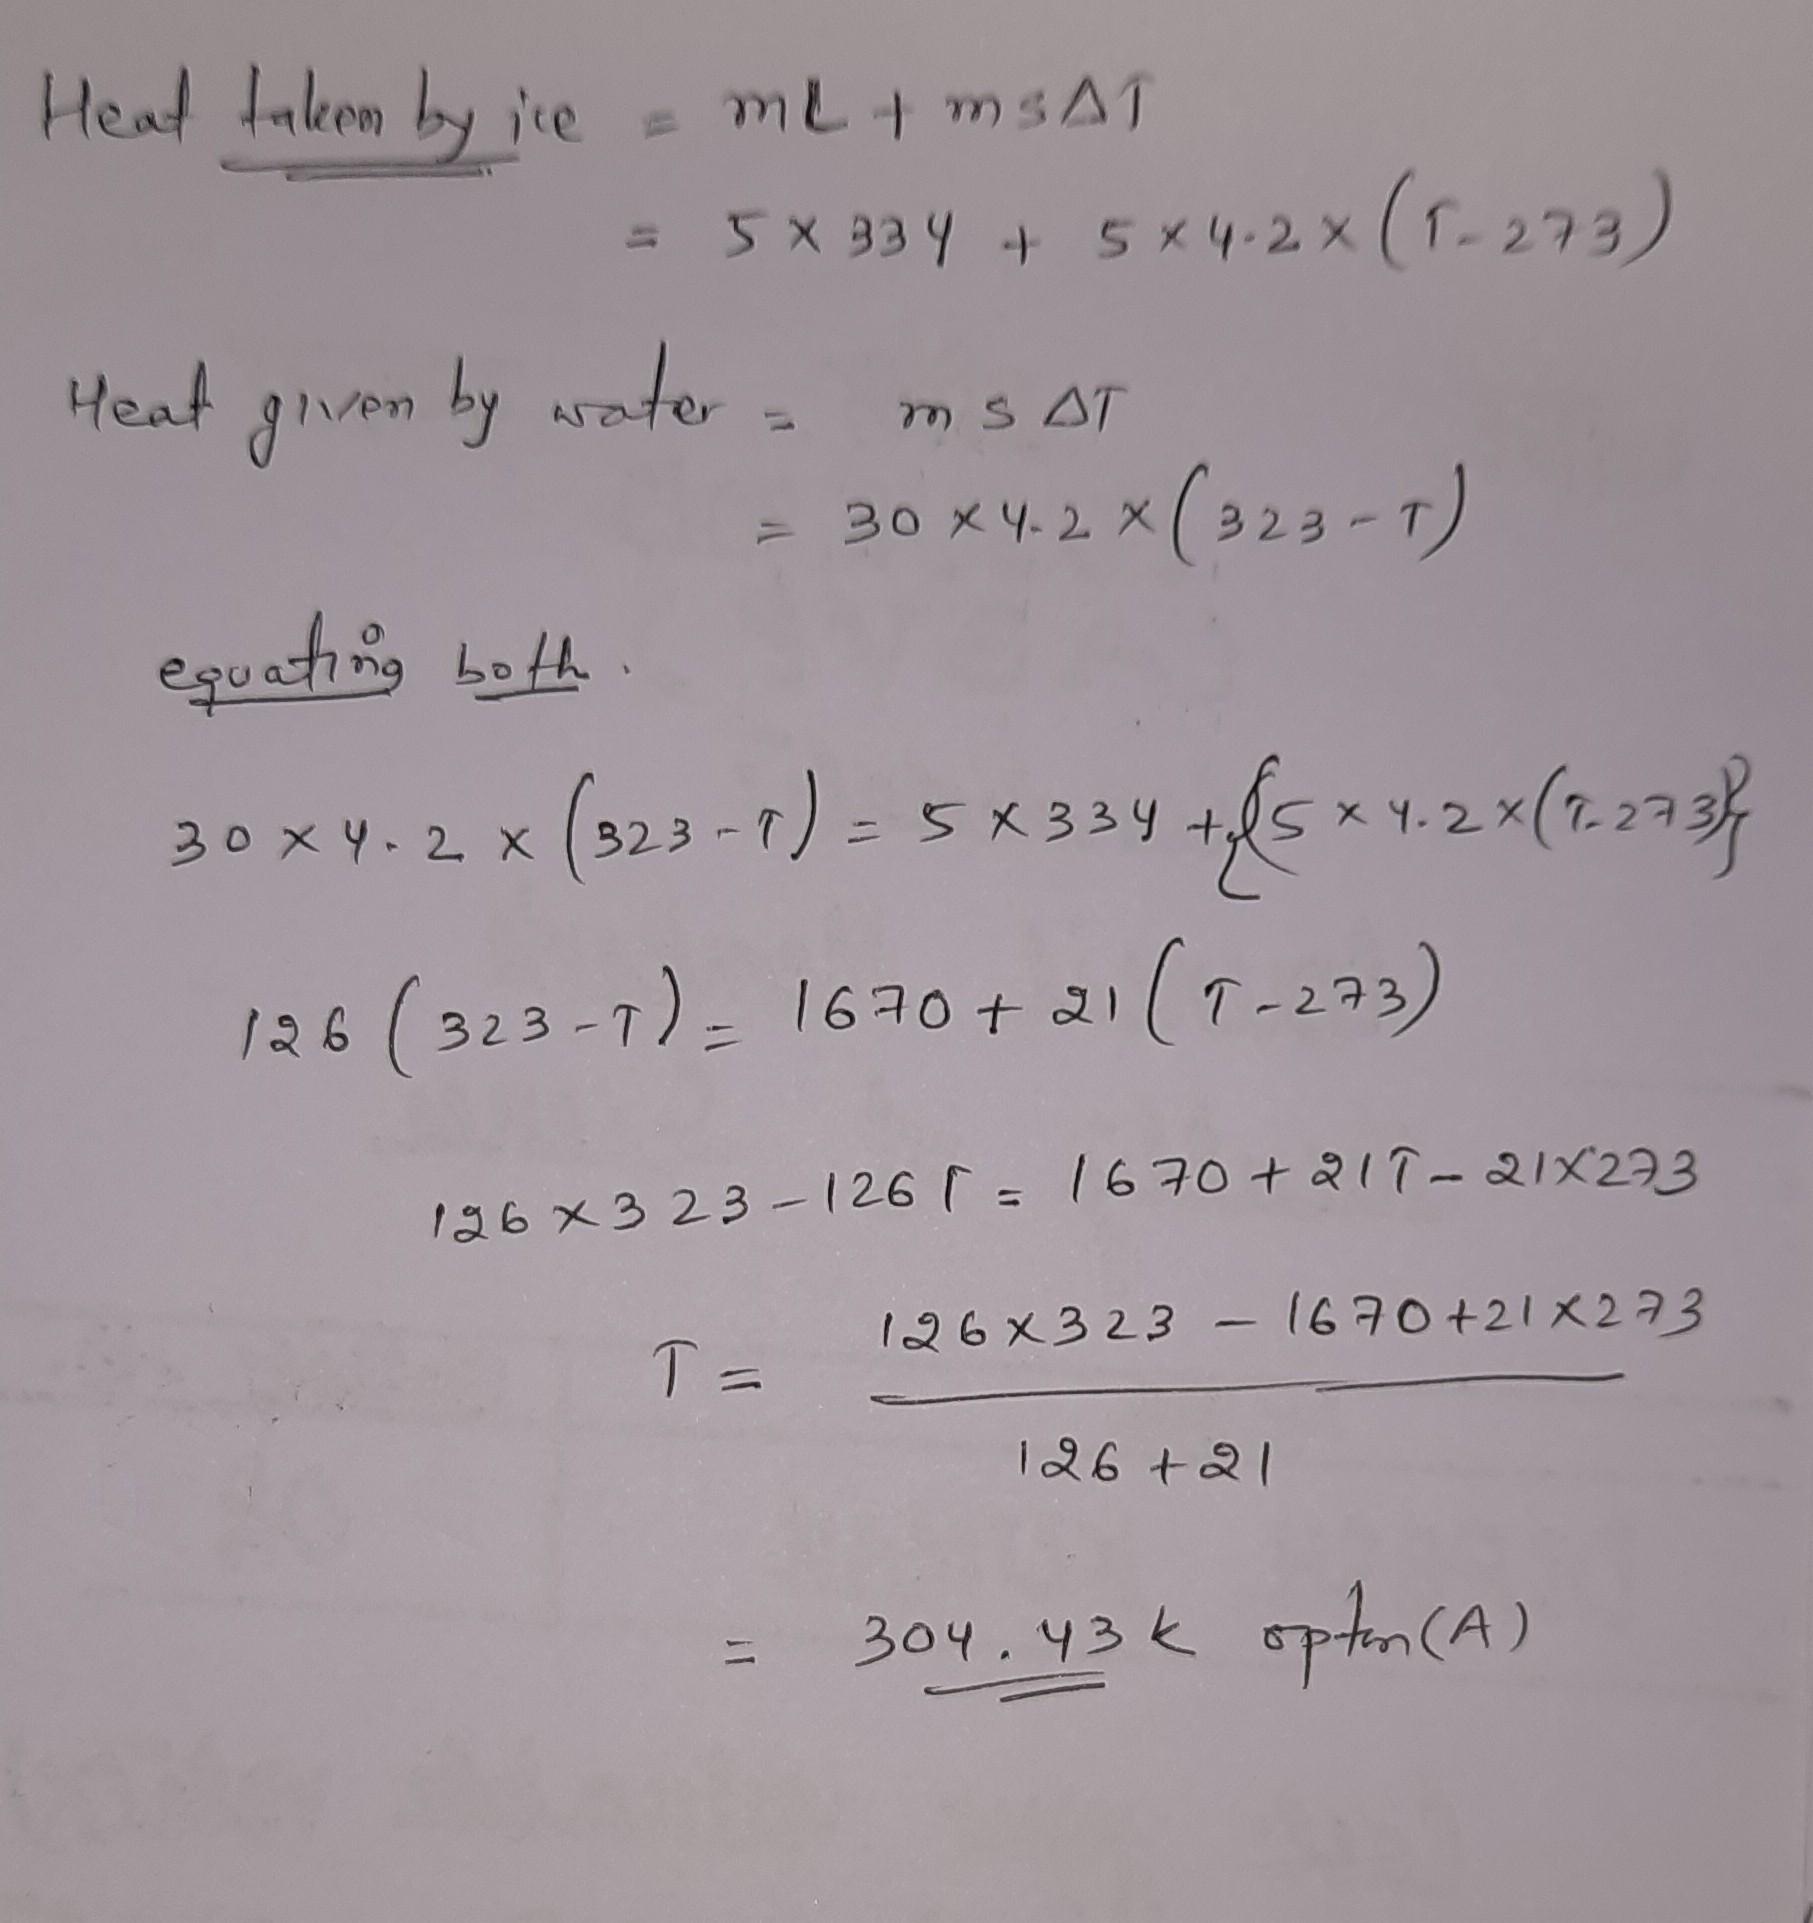 Heat taken by ice = mL + msΔT
= 5 × 334 + 5 × 4.2 × (T-273)
Heat given by water = msΔT
= 30 × 4.2 × (323-T)
equating both.
30 × 4.2 × (323-T) = 5 × 334 + {5 × 4.2 × (T-273)}
126 (323-T) = 1670 + 21 (T-273)
126 × 323 - 126T = 1670 + 21T - 21×273
T = 126×323 - 1670+21×273
126 + 21
= 304.43 k option (A)